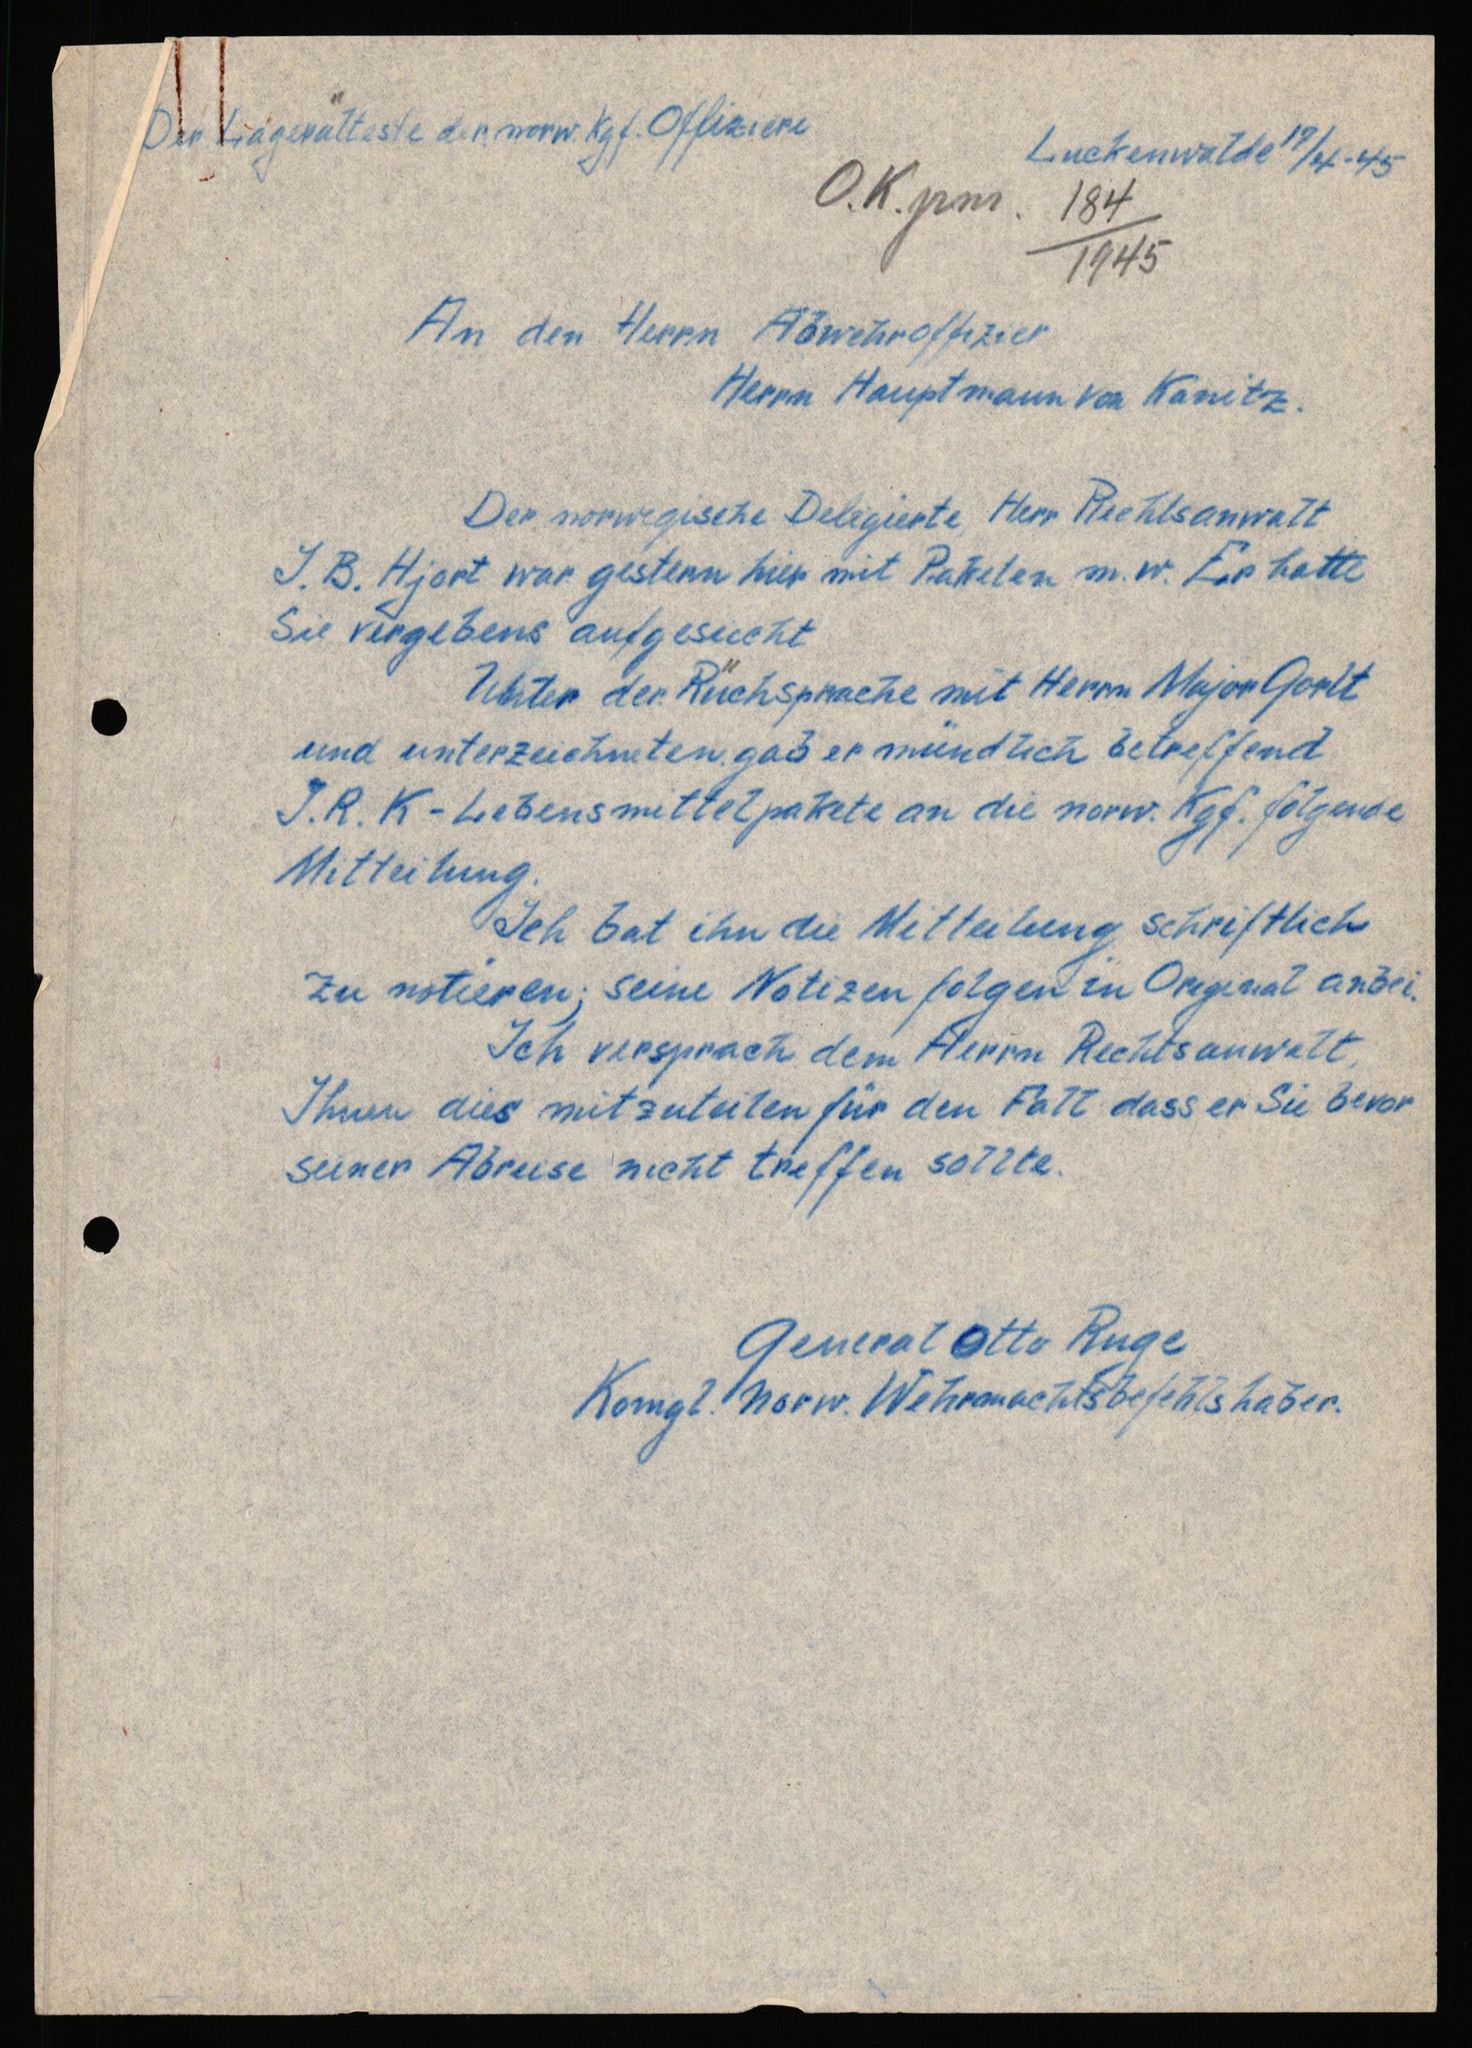 Der Lagerälteste der norw. Kgf. Offiziere
Luckenwalde 19/4-45
O.K. jrnr. 184/1945
An den Herrn Abwehroffizier
Herrn Hauptmann von Kanitz.
Der norwegische Delegierte, Herr Rechtsanwalt
J.B. Hjort war gestern hier mit Paketen m.w. Er hatte
Sie vergebens aufgesucht
Unter der Rüchsprache mit Herrn Major Gorlt
und unterzeichneten gab er mündlich betreffend
I.R.K-Lebensmittelpakete an die norw. Kgf. folgende
Mitteilung.
Ich bat ihn die Mitteilung schriftlich
zu notieren; seine Notizen folgen in Original anbei.
Ich versprach dem Herrn Rechtsanwalt,
Ihnen dies mitzuteilen für den Fall dass er Sie bevor
seiner Abreise nicht treffen sollte.
General Otto Ruge
Komgl. Norw. Wehrmachtsbefehlshaber.